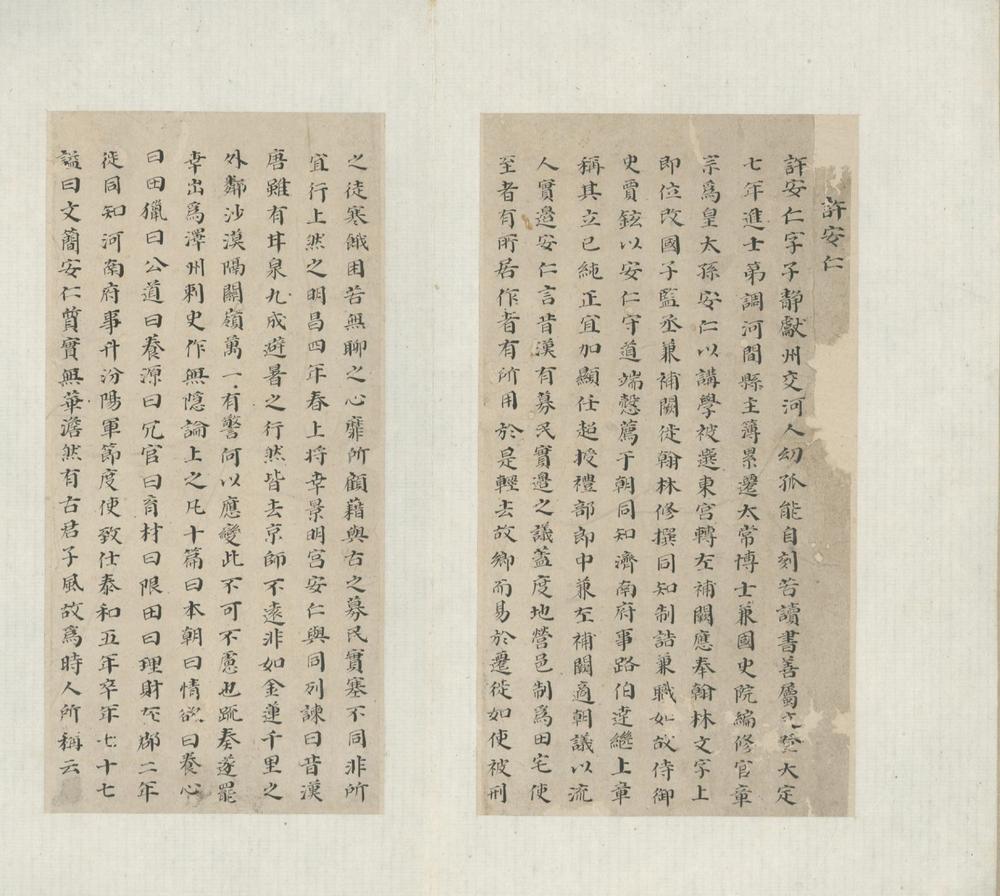 許安仁
許安仁字子靜獻州交河人幼孤能自刻苦讀書善屬文登大定
七年進士第調河間縣主簿累遷太常博士兼國史院編修官章
宗為皇太孫安仁以講學被選東宮轉左補闕應奉翰林文字上
即位改國子監丞兼補闕徙翰林修撰同知制誥兼職如故侍御
史賈鉉以安仁守道端慤薦于朝同知濟南府事路伯達繼上章
稱其立已純正宜加顯任超授禮部郎中兼左補闕適朝議以流
人實邊安仁言昔漢有募民實邊之議葢度地營邑制為田宅使
至者有所居作者有所用於是輕去故鄉而易於遷徙如使被刑
之徒寒餓困苦無聊之心靡所顧藉與古之募民實塞不同非所
宜行上然之明昌四年春上將幸景明宮安仁與同列諫曰昔漢
唐雖有甘泉九成避暑之行然皆去京師不遠非如金蓮千里之
外鄰沙漠隔關嶺萬一有警何以應變此不可不慮也疏奏遂罷
幸出為澤州刺史作無隱論上之凡十篇曰本朝曰情欲曰養心
曰田獵曰公道曰養源曰冗官曰育材曰限田曰理財在郡二年
徙同知河南府事升汾陽軍節度使致仕泰和五年卒年七十七
謚曰文簡安仁質實無華澹然有古君子風故為時人所稱云